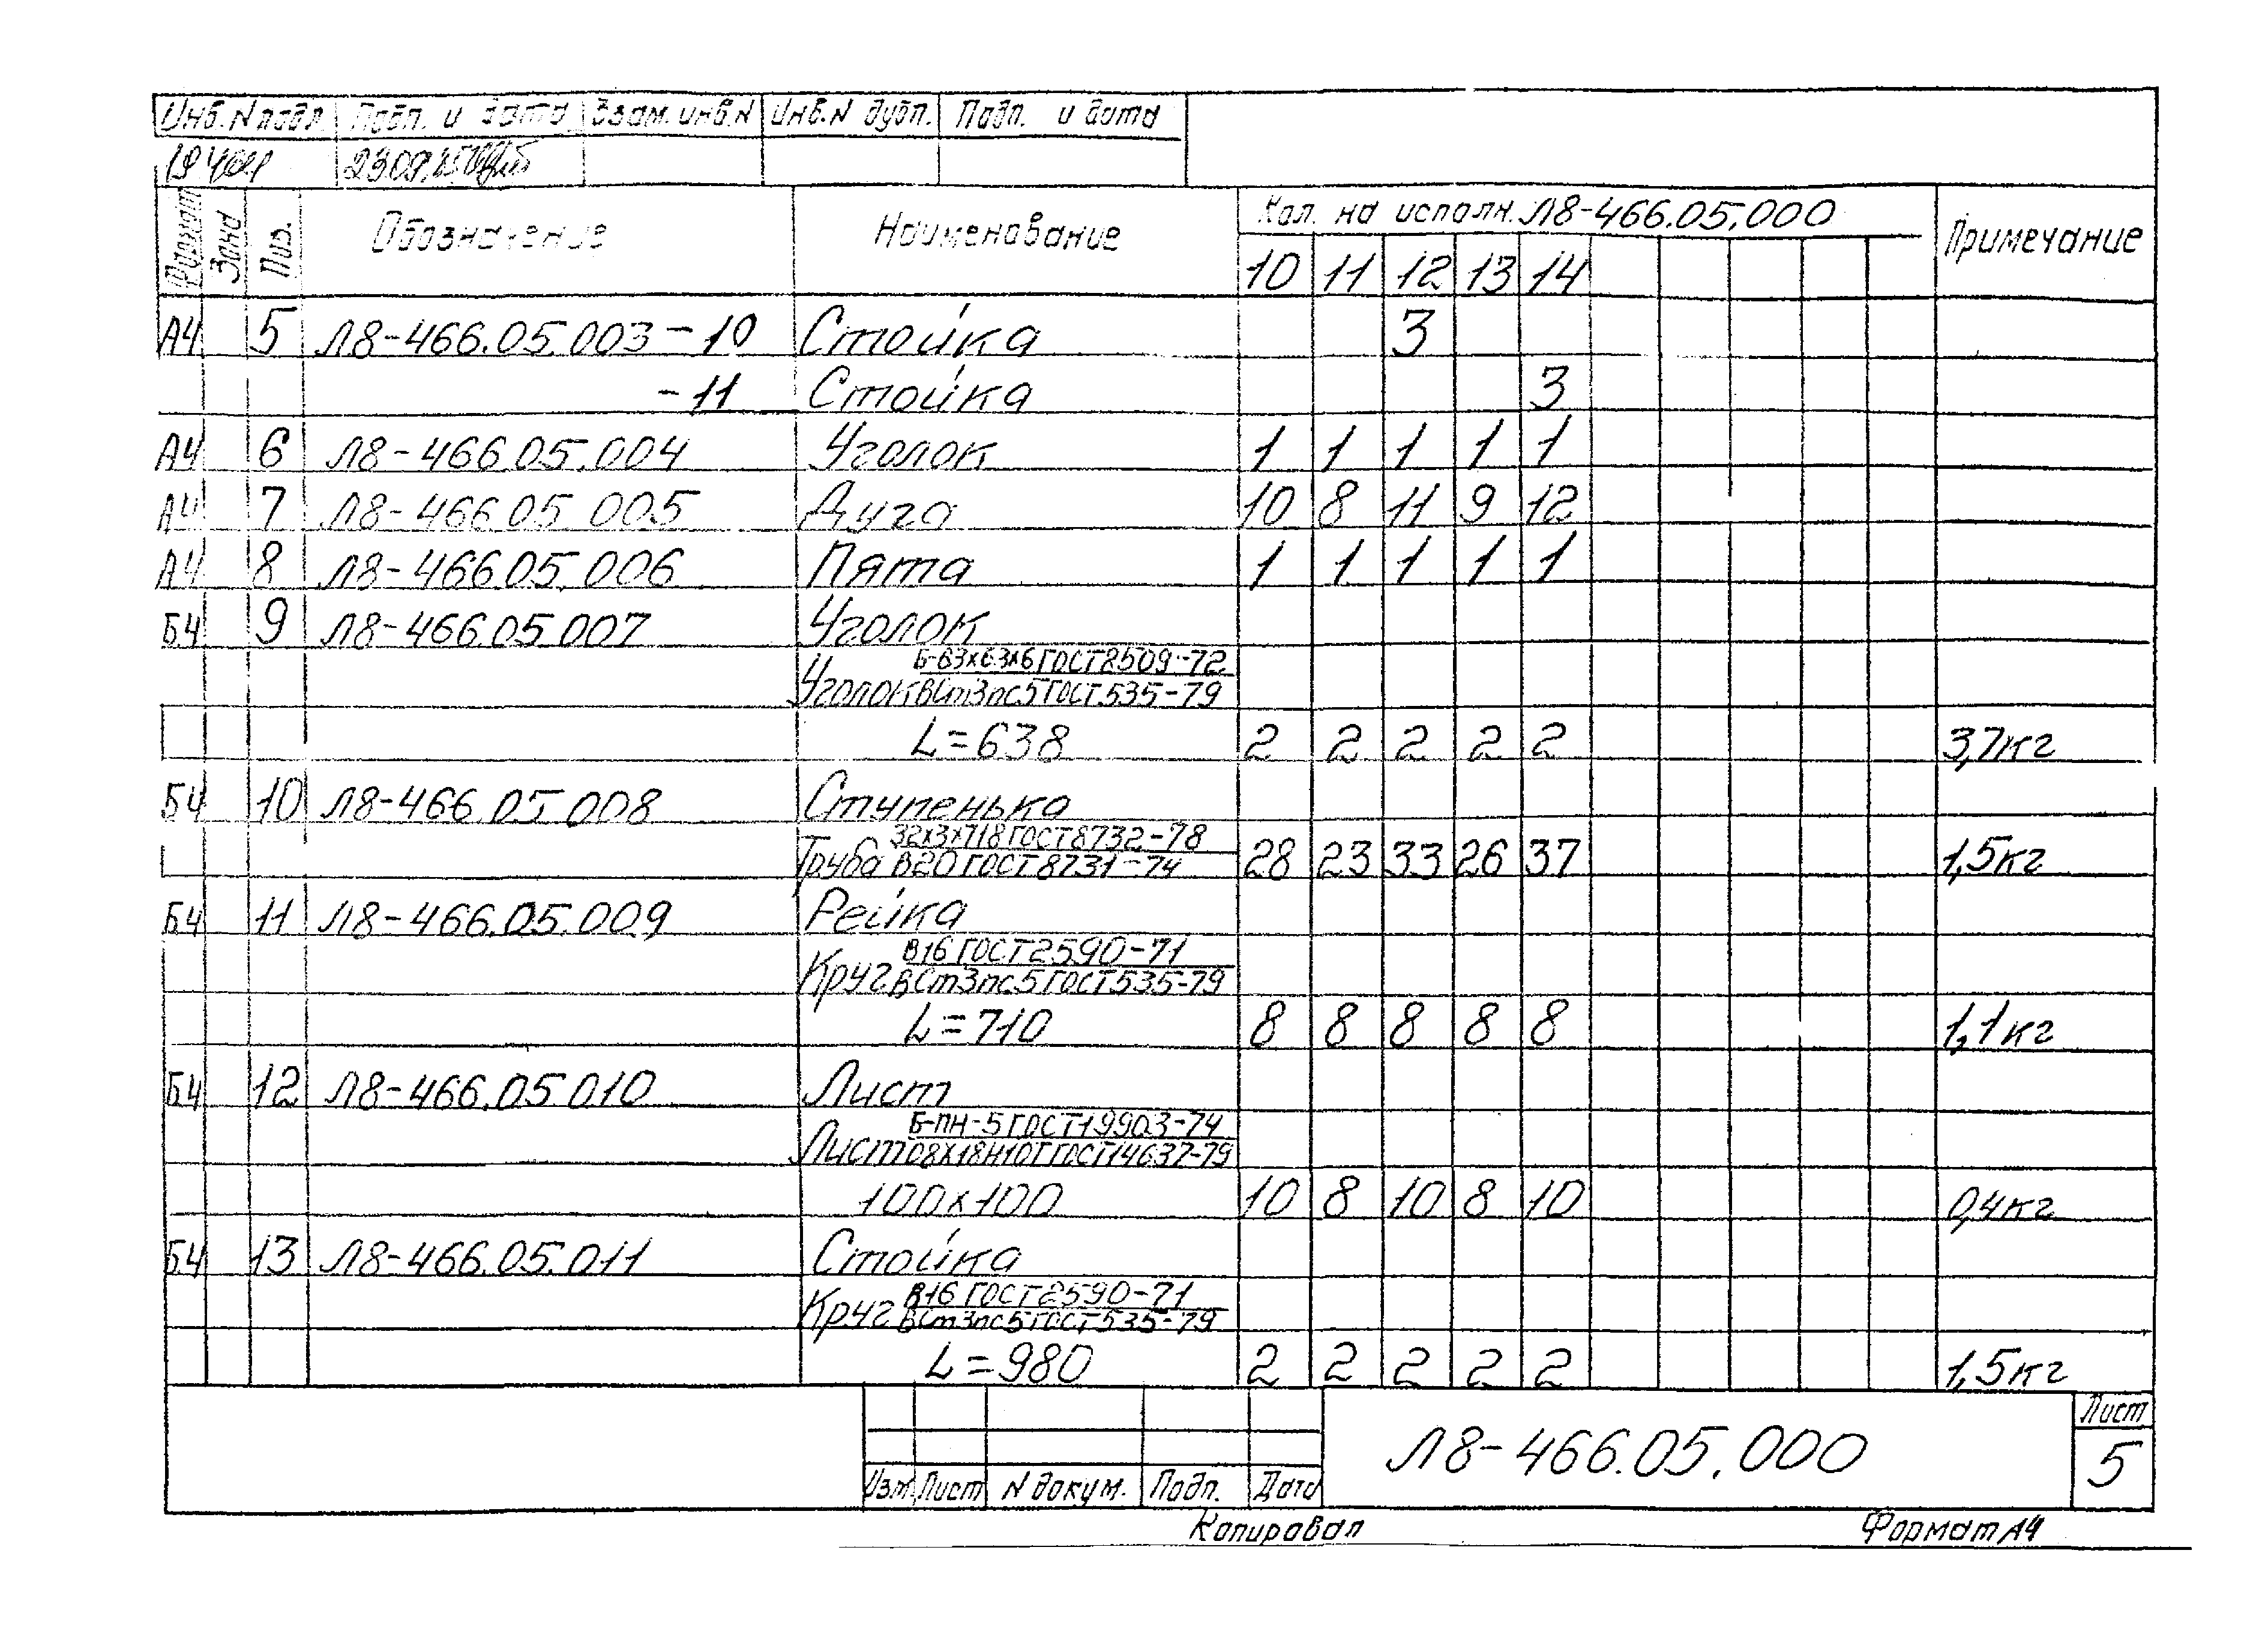 Инв.N подл. Подп. и дата Взам.инв.N Инв.N дубл. Подп. и дата
Формат Зона Поз. Обозначение Наименование Кол. на исполн. Л8-466.05.000 Примечание
10 11 12 13 14
А4 5 Л8-466.05.003-10 Стойка 3
-11 Стойка 3
А4 6 Л8-466.05.004 Уголок 1 1 1 1 1
А4 7 Л8-466.05.005 Дуга 10 8 11 9 12
А4 8 Л8-466.05.006 Пята 1 1 1 1 1
Б4 9 Л8-466.05.007 Уголок
Б-63х63х6 ГОСТ 8509-72
Уголок ВСт3пс5 ГОСТ 535-79
L=638 2 2 2 2 2 3,7кг
Б4 10 Л8-466.05.008 Ступенька
32х3х718 ГОСТ 8732-78
Труба В20 ГОСТ 8731-74 28 23 33 26 37 1,5кг
Б4 11 Л8-466.05.009 Рейка
В16 ГОСТ 2590-71
Круг ВСт3пс5 ГОСТ 535-79
L=710 8 8 8 8 8 1,1кг
Б4 12 Л8-466.05.010 Лист
Б-ПН-5 ГОСТ 19903-74
Лист 08Х18Н10Т ГОСТ 14637-79
100х100 10 8 10 8 10 0,4кг
Б4 13 Л8-466.05.011 Стойка
В16 ГОСТ 2590-71
Круг ВСт3пс5 ГОСТ 535-79
L=980 2 2 2 2 2 1,5кг
Изм. Лист N докум. Подп. Дата Л8-466.05.000 Лист 5
Копировал Формат А4